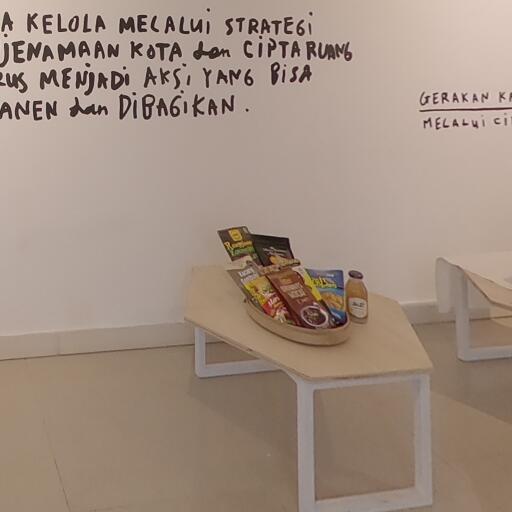 A KELOLA MELALUI STRATEGI
JENAMAAN KOTA dan CIPTA RUANG
RUS MENJADI AKSI YANG BISA
ANEN dan DIBAGIKAN.
GERAKAN KA
MELALUI CI